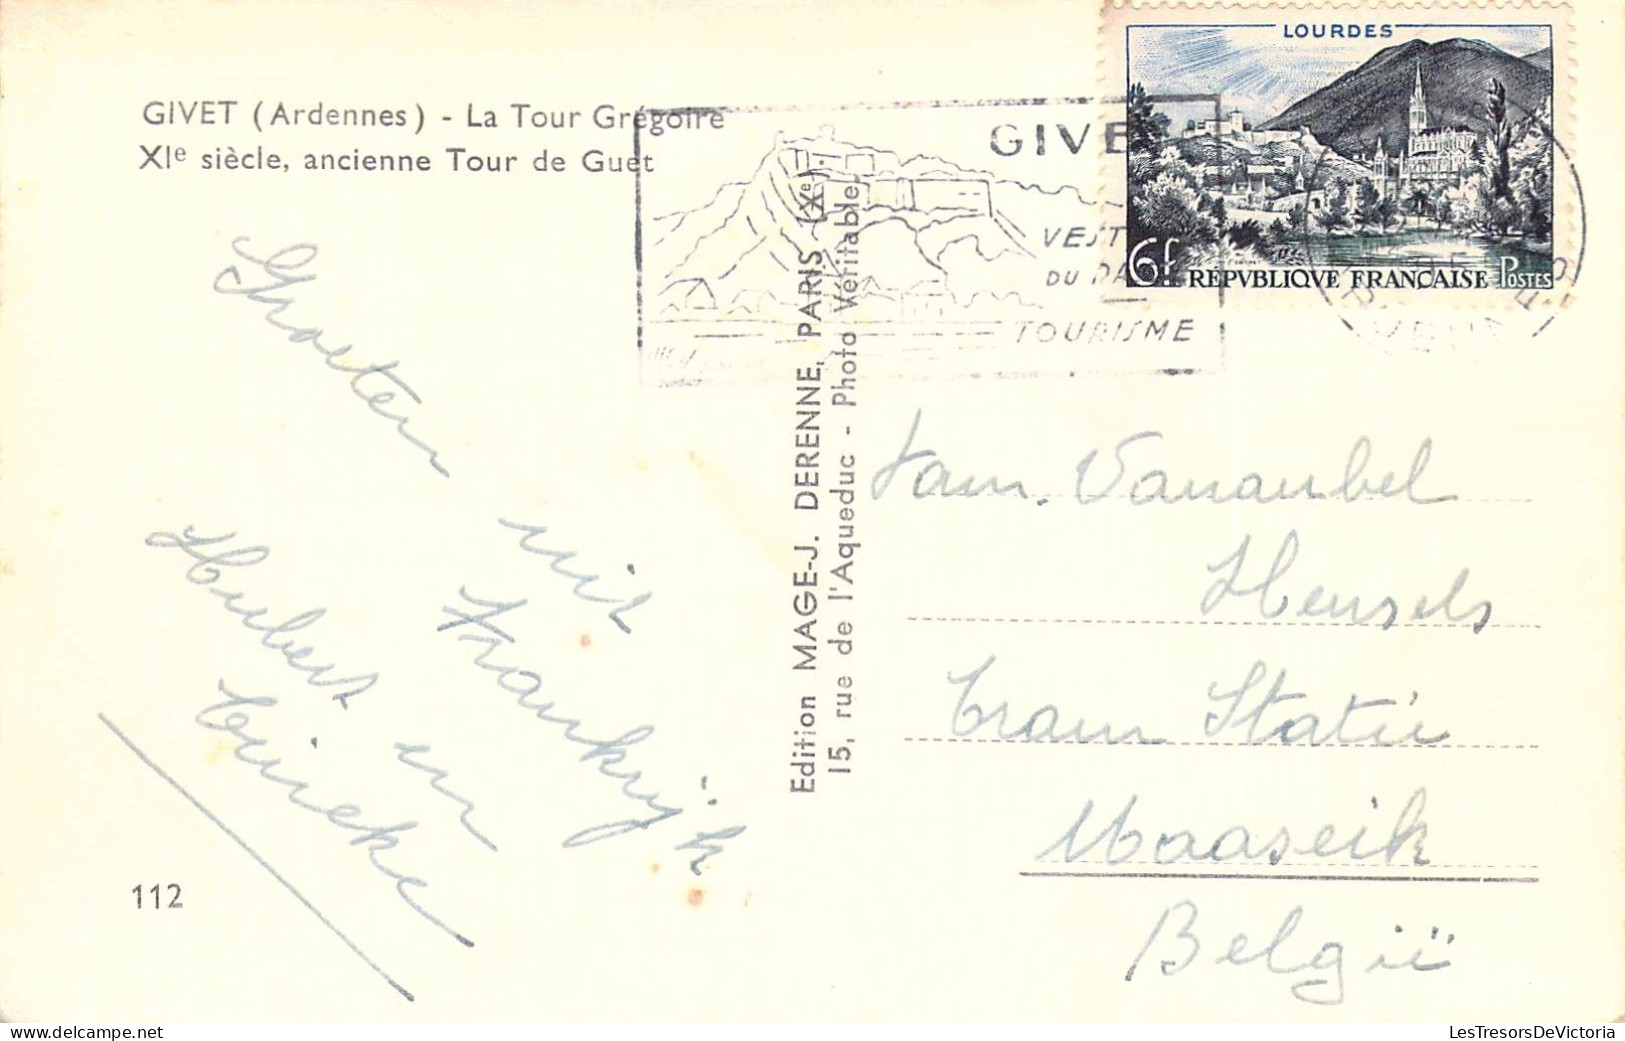 GIVET (Ardennes) - La Tour Grégoire
XIe siècle, ancienne Tour de Guet
Groeten
uit
Frankrijk
Hubert en
Trineke
112
Edition MAGE-J. DERENNE, PARIS (Xe).
15, rue de l'Aqueduc - Photo Véritable.
GIVE
VEST
DU PA
TOURISME
LOURDES
6f RÉPVBLIQVE FRANÇAISE POSTES
Fam. Vanaubel
Hensels
Tram Statie
Maaseik
Belgïe
LesTresorsDeVictoria